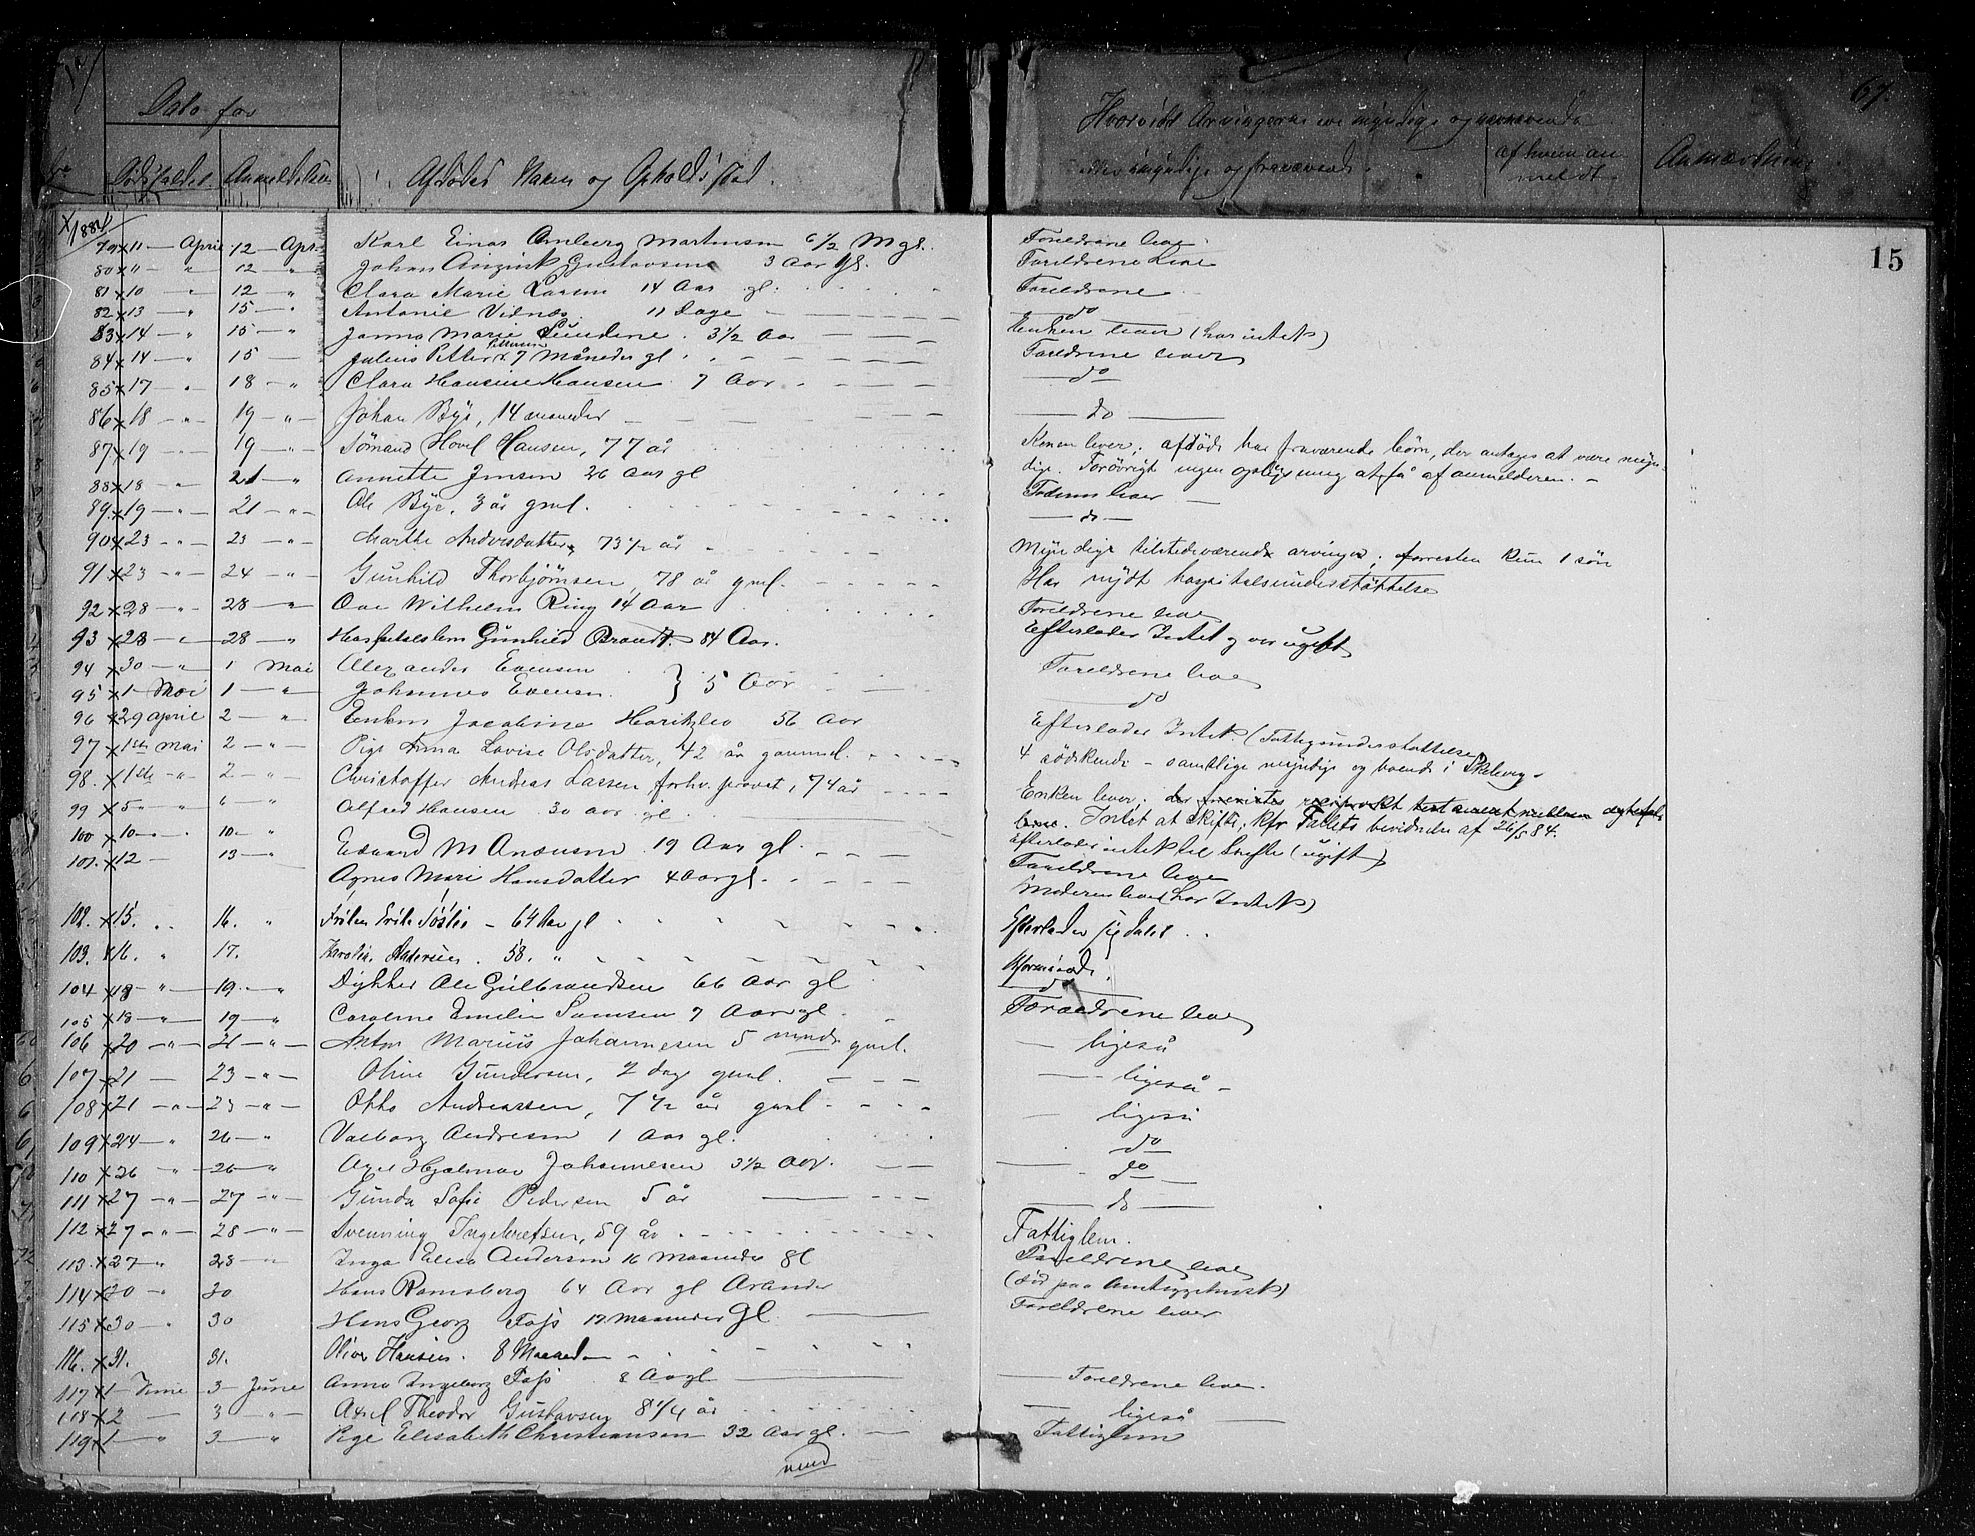 Dato for
Dødsfaldet. Anmeldelsen
Afdødes Navn og Opholdsted.
Hvorvidt Arvingerne ere myndige og nærværende
eller umyndige og fraværende.
af hvem anmeldt
Anmærkning
67.
15
1884
79 x 11 — April 12 — Apr. Karl Einar Amberg Martinsen 6 1/2 Mgl. Forældrene lever
80 x 11 " 12 — " Johan Gustavsen 3 Aar gl. Forældrene lever
81 x 10 — " 12 — " Clara Marie Larsen 14 Aar gl. Forældrene
82 x 13 — " 15 — " Antonie Vilnæs 11 Dage — do
83 x 14 — " 15 — " Janna Marie Lundene 3 1/2 Aar Enken lever (har intet)
84 x 14 — " 15 — Julius Petter Pettersen 7 Måneder gl Forældrene lever
85 x 17 " 18 — " Clara Hansine Hansen 7 Aar — do —
86 x 18 — " — 19 — " — Johan Bye, 14 maaneder — do —
87 x 19 — " — 19 — " — Sømand Hovel Hansen, 77 år Konen lever; afdøde har fraværende børn, der antages at være myndige. Forøvrigt ingen oplysning at få af anmelderen. —
88 x 18 — " 21 — " Annette Jensen 26 Aar gl Faderen lever —
89 x 19 — " — 21 — " — Ole Bye, 3 år gml. — do —
90 x 23 — " — 23 — " — Marthe Andersdatter, 73 1/2 år Myndige tilstedeværende arvinger; forresten kun 1 søn
91 x 23 — " — 24 — " — Gunhild Thorbjørnsen, 78 år gml. Har nydt hospitalsunderstøttelse
92 x 28 — " 28 — " Ove Wilhelm Ring 14 Aar Forældrene lever
93 x 28 — " 28 — " Hospitalslem Gunhild Brandt. 84 Aar. Efterlader Intet og var ugift
94 x 30 — " — 1 Mai Alexander Evensen } 5 Aar Forældrene lever
95 x 1 Mai 1 — " Johannes Evensen do
96 x 29 april 2 — " — Enken Jacobine 56 Aar Efterlader Intet. (Fattigunderstøttelse)
97 x 1ste mai 2 — " — Pige Anna Lovise Olsdatter, 42 år gammel. 4 södskende — samtlige myndige og boende i
98. x 1ste — " 2 — " — Christoffer Andreas Lassen forhv. provst, 74 år Enken lever; der forevistes reciprokt testament mellem ægtefolkene. Intet at skifte; kfr Fallets bevidnelse af 26/5 84.
99 x 5 " " 6 — " Alfred Hansen 30 aar gl. Efterlader intet til Skifte (ugift)
100 x 10 — " 10 — " Edvard M Andersen 19 Aar gl. Forældrene lever
101. x 12 — 13 — " Agnes Marie Hansdatter 4 Aar gl. Moderen lever (har Intet)
102. x 15. .. 16. " — 64 Aar gl Efterlader sig Intet
103. x 16. " 17. Karoline Andersen. 58. "
104 x 18 — " 19 — " Dykker Ole Gulbrandsen 66 Aar gl do
105 x 18 — " — 19 — " Caroline Emilie Samsen 7 Aar gl Forældrene lever
106 x 20 — " — 21 — " — Anton Marius Johannesen 5 mndr gml. — ligeså
107 x 21 — 23 — " — Oline Gundersen, 2 dage gml. — ligeså —
108 x 21 — " — 23 — " — Otto Andreassen, 7 1/2 år gml — ligeså
109 x 24 — " 26 — " Valborg Andresen 1 Aar gl. do
110 x 26 " — 26 — " Axel Hjalmar Johannesen 3 1/2 Aar. — do —
111 x 27 — " — 27 — " — Gunda Sofie Pedersen 5 år — do —
112 x 27 — " — 28 — " — Svenning Ingebretsen, 59 år Fattiglem.
113. x 27 — " 28 — " Inga Elise Andersen 16 Maaneder gl Forældrene lever
114 x 30 " 30 Hans Ramsberg 64 Aar gl (død paa Amtssygehuset)
115 x 30 — " 30 Hans Georg Foss 17 Maaneder gl Forældrene lever
116. x 31. 31. Oliver Hansen. 8 Maaneder
117 x 1 — June 3 — June Anna Ingeborg Foss 8 Aar gl — Forældrene lever.
118 x 2 — 3 — " — Axel Theodor Gustavsen 8 1/4 år — ligeså
119 x 1 — " 3 — " Pige Elisabeth Christiansen 32 Aar gl. Fattiglem
vend